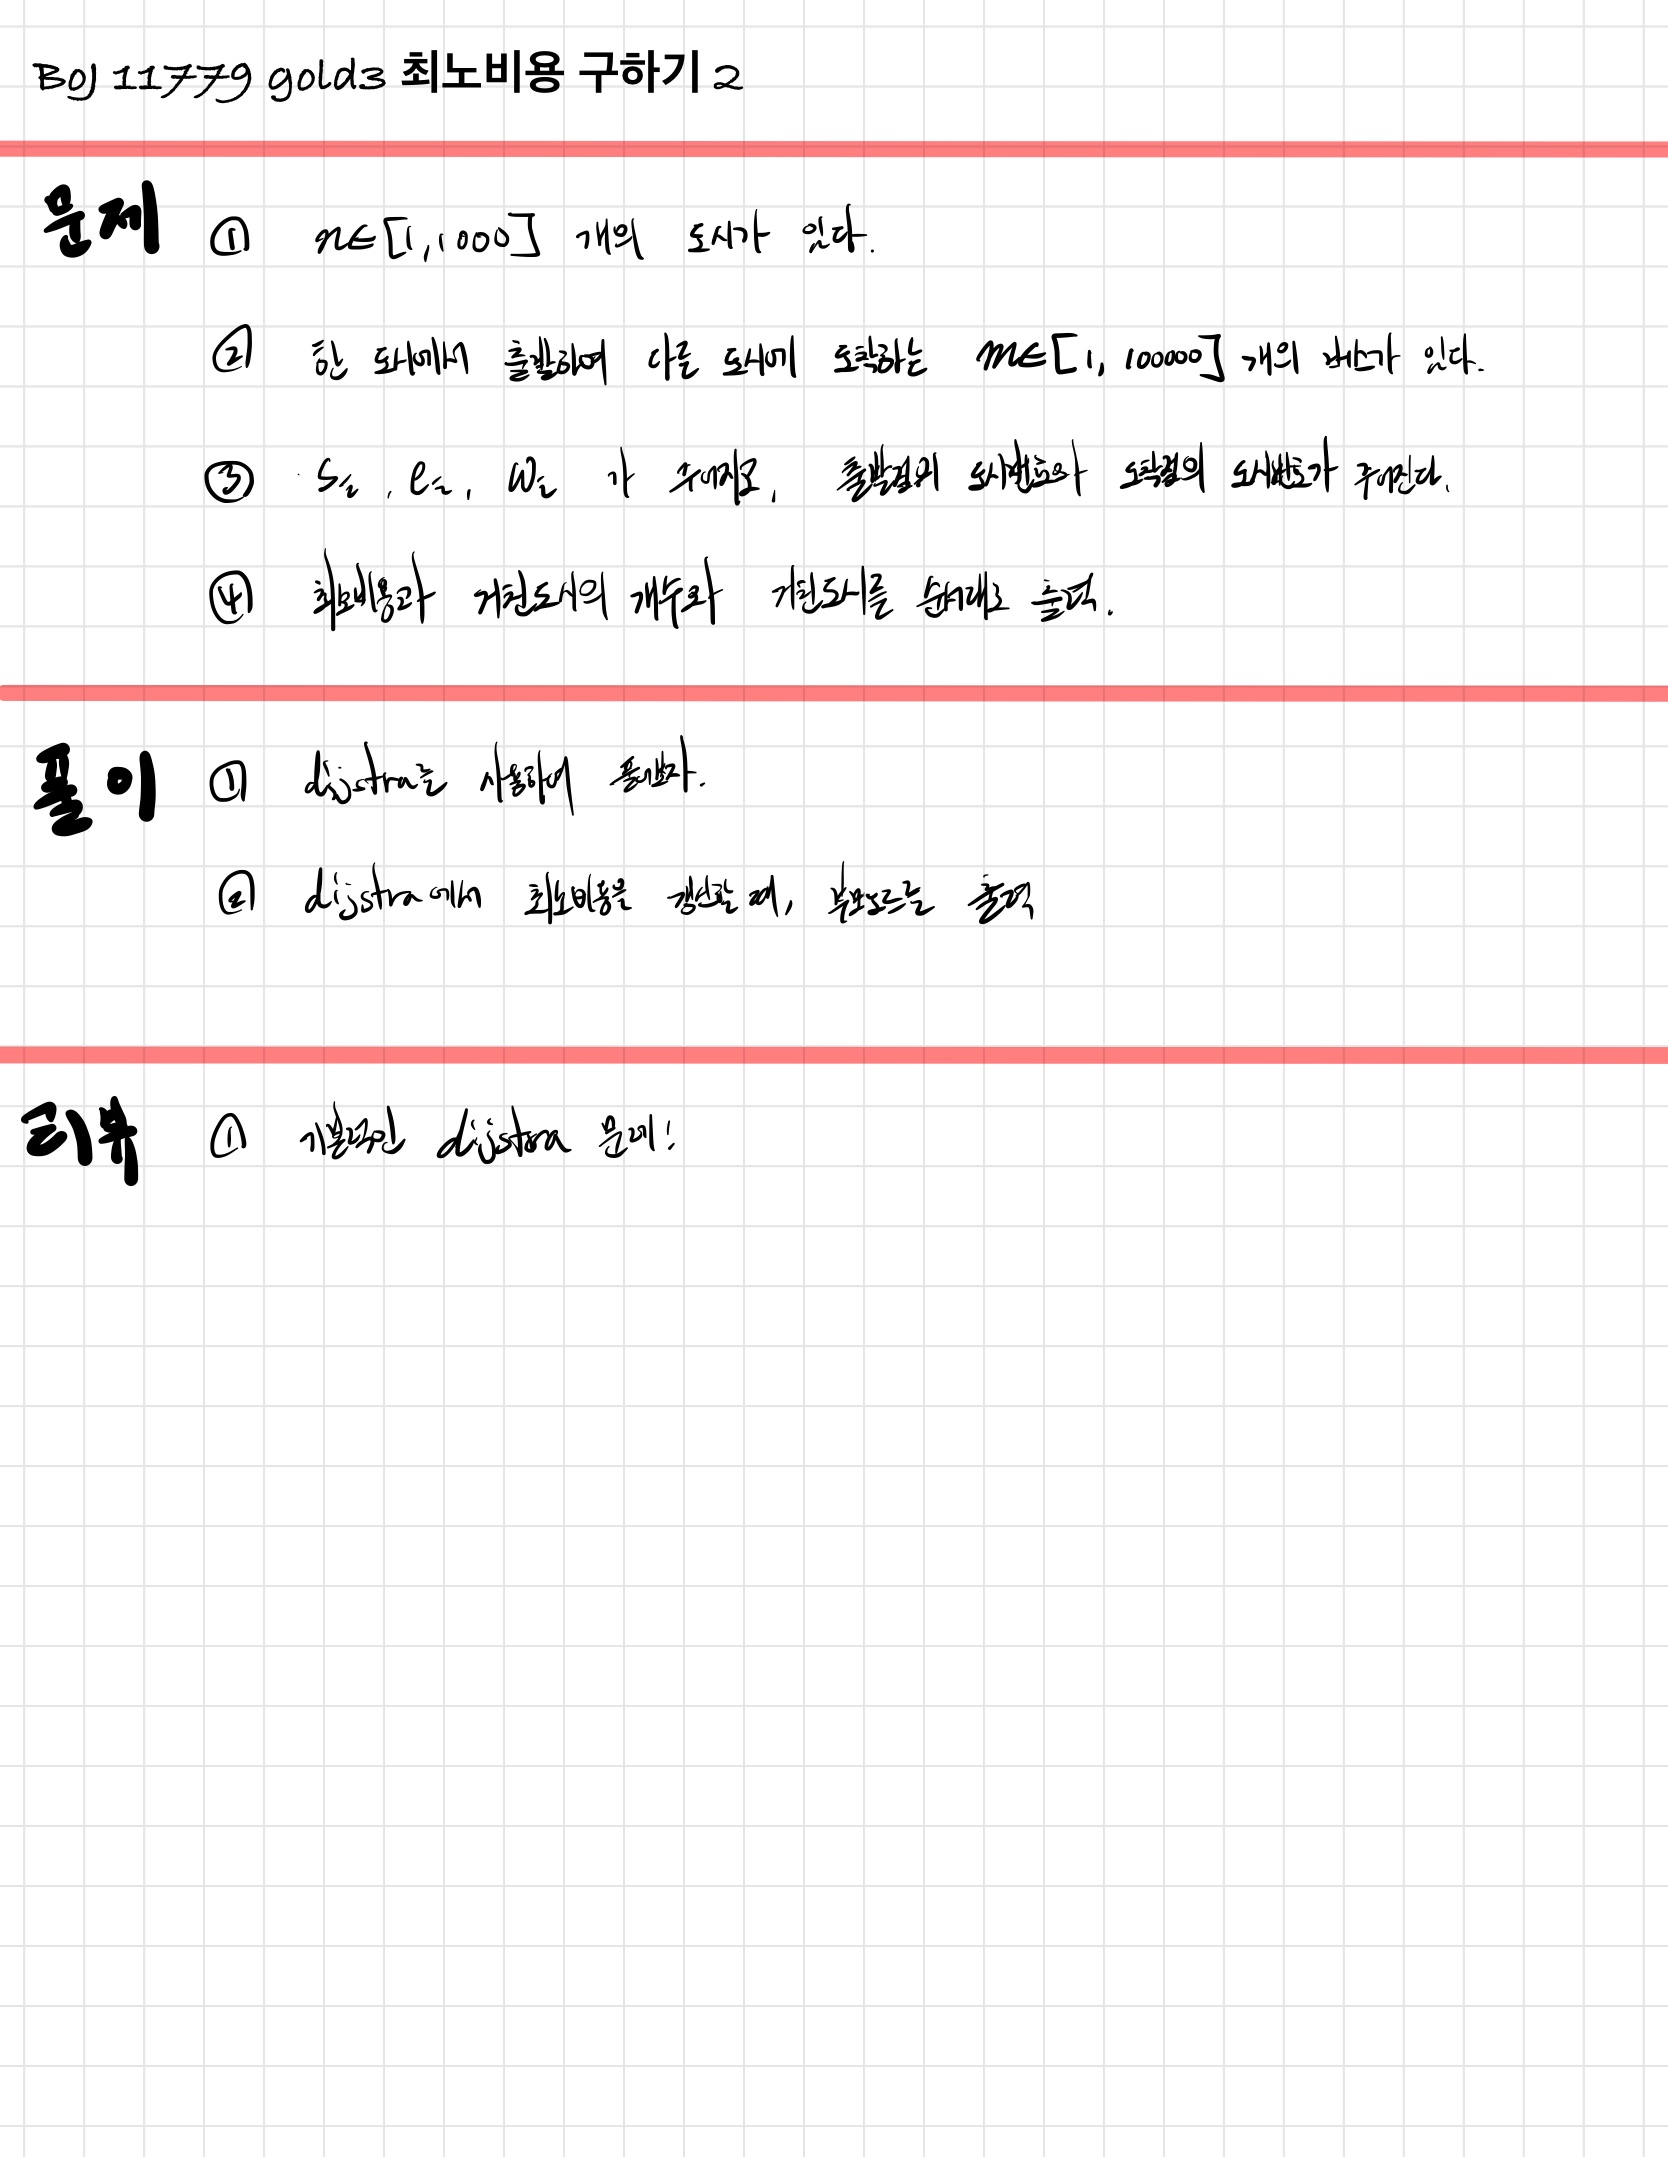 BOJ 11779 gold3 최소비용 구하기 2
문제 ① n∈[1,1000] 개의 도시가 있다.
② 한 도시에서 출발하여 다른 도시에 도착하는 m∈[1, 100000] 개의 버스가 있다.
③ si, ei, wi 가 주어지고, 출발점의 도시번호와 도착점의 도시번호가 주어진다.
④ 최소비용과 거친도시의 개수와 거친도시를 순서대로 출력.
풀이 ① dijstra를 사용하여 풀어보자.
② dijstra에서 최소비용을 갱신할 때, 부모노드를 출력
리뷰 ① 기본적인 dijstra 문제!